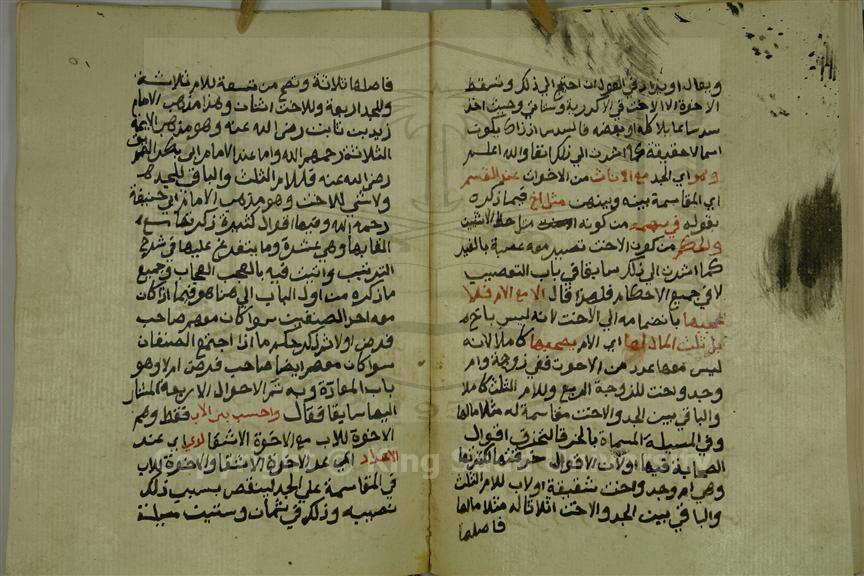 ويقال اويزاد في العول ان احتيج الي ذلك وتسقط
الاخوة الا الاخت في الاكدرية وستاتي وحيث اخذ
سدسا عايلا كله او بعضه فالسدس اذ ذاك يكون
اسما لا حقيقة كما اشرت الي ذلك انفا والله اعلم
وهو اي الجد مع الاناث من الاخوات عند القسم
اي المقاسمة بينه وبينهن مثل اخ فيما ذكره
بقوله في سهمه من كونه مثل حظ الانثيين
والحكم من كون الاخت تصير معه عصبة بالغير
كما اشرت الي ذلك سابقا في باب التعصيب
لا في جميع الاحكام فلهذا قال الا مع الام فلا
يحجبها بانضمامه الي الاخت لانه ليس باخ
بل ثلث المال لها اي الام يصحبها كاملا لانه
ليس معها عدد من الاخوة ففي زوجة وام
وجد واخت للزوجة الربع وللام الثلث كاملا
والباقي بين الجد والاخت مقاسمة له مثلا مالها
وفي المسيلة المسماة بالخرقا لتخرق اقوال
الصحابة فيها اولان الاقوال خرقتها لكثرتها
وهي ام وجد واخت شقيقة او لاب للام الثلث
والباقي بين الجد والاخت اثلاثا له مثلا مالها
فاصلها
فاصلها ثلاثة وتصح من تسعة للام ثلاثة
وللجد اربعة وللاخت اثنان وهذا مذهب الامام
زيد بن ثابت رضي الله عنه وهو مذهب الايمة
الثلاثة رحمهم الله واما عند الامام ابي بكر الصديق
رضي الله عنه فللام الثلث والباقي للجد
ولا شي للاخت وهو مذهب الامام ابي حنيفة
رحمه الله وفيها اقوال كثيرة ذكرتها مع
القابها وهي عشرة وما يتفرع عليها في شرح
الترتيب واتيت فيه بالعجب العجاب وجميع
ما ذكره من اول الباب الي هنا هو فيما اذا كان
معه احد الصنفين سوا كان معهم صاحب
فرض اولا ثم ذكر حكم ما اذا اجتمع الصنفان
سوا كان معهم ايضا صاحب فرض ام لا وهو
باب المعادة وبه تتم الاحوال الاربعة المشار
اليها سابقا فقال واحسب بني الاب فقط وهم
الاخوة للاب مع الاخوة الاشقا لدي اي عند
الاعداد اي عد الاخوة الاشقا والاخوة للاب
في المقاسمة علي الجد لينقص بسبب ذلك
نصيبه وذلك في ثمان وستين مسيلة